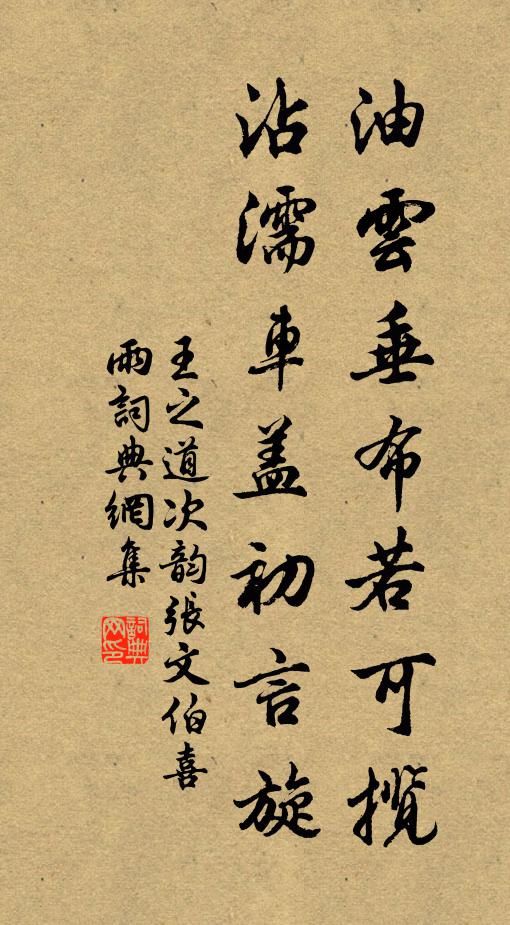 油雲垂布若可攬
沾濡車蓋初言旋
王之道次韵張文伯喜
雨詞典網集
詞典网印